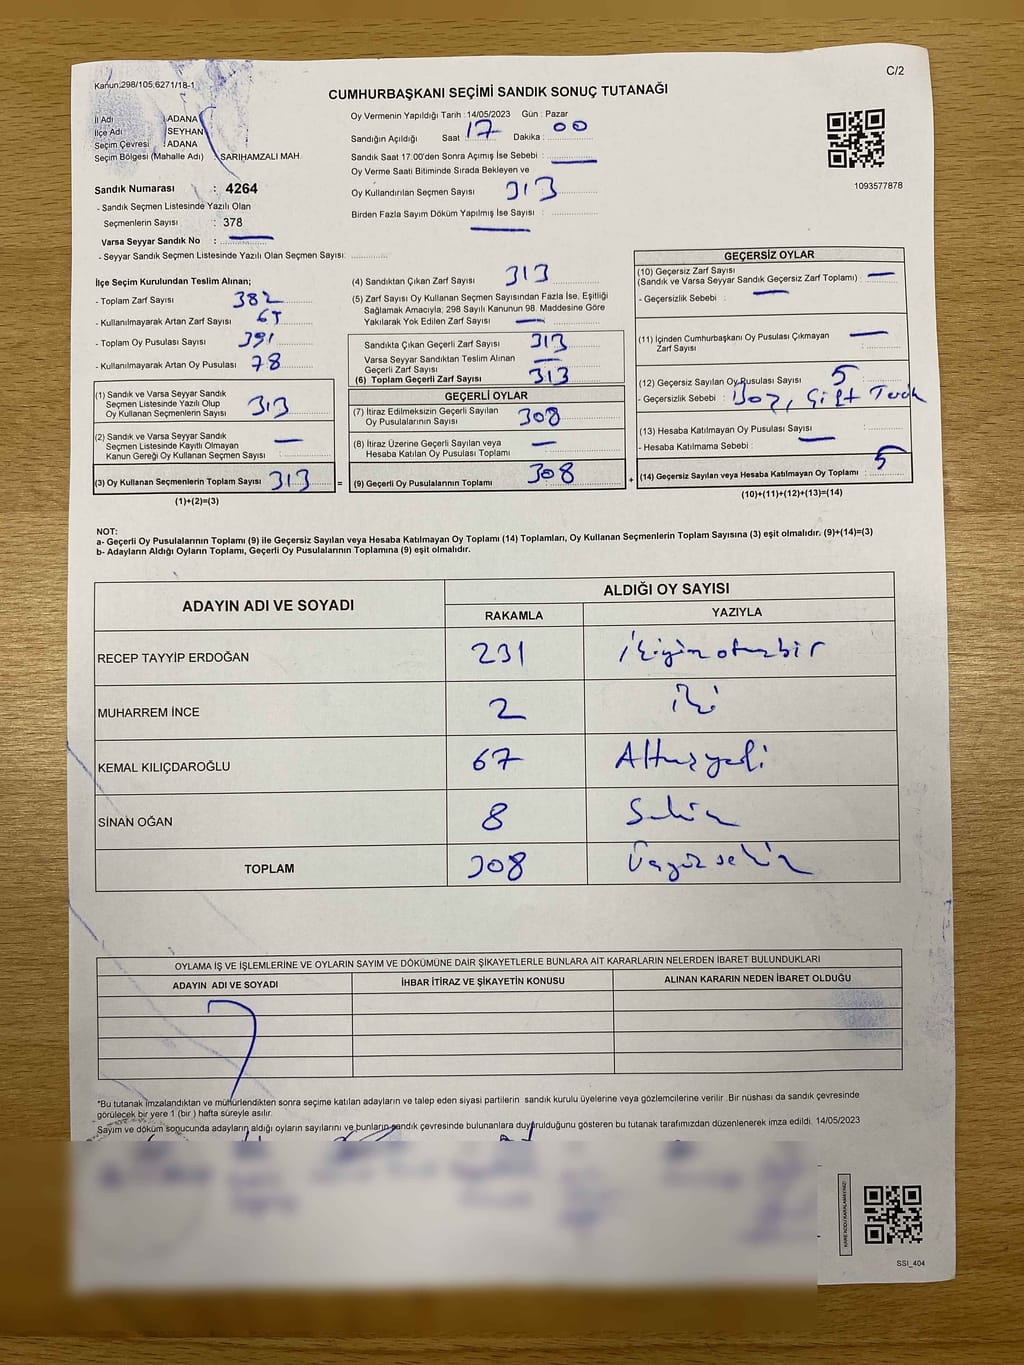 C/2
Kanun;298/105,6271/18-1
CUMHURBAŞKANI SEÇİMİ SANDIK SONUÇ TUTANAĞI
İl Adı : ADANA
İlçe Adı : SEYHAN
Seçim Çevresi : ADANA
Seçim Bölgesi (Mahalle Adı) : SARIHAMZALI MAH.
Sandık Numarası : 4264
- Sandık Seçmen Listesinde Yazılı Olan
Seçmenlerin Sayısı : 378
Varsa Seyyar Sandık No :
- Seyyar Sandık Seçmen Listesinde Yazılı Olan Seçmen Sayısı:
Oy Vermenin Yapıldığı Tarih :14/05/2023 Gün : Pazar
Sandığın Açıldığı Saat 17 Dakika : 00
Sandık Saat 17.00'den Sonra Açımış İse Sebebi :
Oy Verme Saati Bitiminde Sırada Bekleyen ve
Oy Kullandırılan Seçmen Sayısı 313
Birden Fazla Sayım Döküm Yapılmış İse Sayısı :
1093577878
İlçe Seçim Kurulundan Teslim Alınan;
- Toplam Zarf Sayısı 382
- Kullanılmayarak Artan Zarf Sayısı 65
- Toplam Oy Pusulası Sayısı 391
- Kullanılmayarak Artan Oy Pusulası 78
(1) Sandık ve Varsa Seyyar Sandık
Seçmen Listesinde Yazılı Olup
Oy Kullanan Seçmenlerin Sayısı 313
(2) Sandık ve Varsa Seyyar Sandık
Seçmen Listesinde Kayıtlı Olmayan
Kanun Gereği Oy Kullanan Seçmen Sayısı :
(3) Oy Kullanan Seçmenlerin Toplam Sayısı 313 =
(1)+(2)=(3)
(4) Sandıktan Çıkan Zarf Sayısı 313
(5) Zarf Sayısı Oy Kullanan Seçmen Sayısından Fazla İse, Eşitliği
Sağlamak Amacıyla; 298 Sayılı Kanunun 98. Maddesine Göre
Yakılarak Yok Edilen Zarf Sayısı :
Sandıkta Çıkan Geçerli Zarf Sayısı 313
Varsa Seyyar Sandıktan Teslim Alınan
Geçerli Zarf Sayısı
(6) Toplam Geçerli Zarf Sayısı 313
GEÇERLİ OYLAR
(7) İtiraz Edilmeksizin Geçerli Sayılan
Oy Pusulasının Sayısı 308
(8) İtiraz Üzerine Geçerli Sayılan veya
Hesaba Katılan Oy Pusulası Toplamı
(9) Geçerli Oy Pusulalarının Toplamı 308 +
GEÇERSİZ OYLAR
(10) Geçersiz Zarf Sayısı
(Sandık ve Varsa Seyyar Sandık Geçersiz Zarf Toplamı) :
- Geçersizlik Sebebi :
(11) İçinden Cumhurbaşkanı Oy Pusulası Çıkmayan
Zarf Sayısı
(12) Geçersiz Sayılan Oy Pusulası Sayısı 5
- Geçersizlik Sebebi : Boş, Çift Tercih
(13) Hesaba Katılmayan Oy Pusulası Sayısı
- Hesaba Katılmama Sebebi :
(14) Geçersiz Sayılan veya Hesaba Katılmayan Oy Toplamı : 5
(10)+(11)+(12)+(13)=(14)
NOT:
a- Geçerli Oy Pusulalarının Toplamı (9) ile Geçersiz Sayılan veya Hesaba Katılmayan Oy Toplamı (14) Toplamları, Oy Kullanan Seçmenlerin Toplam Sayısına (3) eşit olmalıdır. (9)+(14)=(3)
b- Adayların Aldığı Oyların Toplamı, Geçerli Oy Pusulalarının Toplamına (9) eşit olmalıdır.
ADAYIN ADI VE SOYADI ALDIĞI OY SAYISI
RAKAMLA YAZIYLA
RECEP TAYYİP ERDOĞAN 231 ikiyüzotuzbir
MUHARREM İNCE 2 iki
KEMAL KILIÇDAROĞLU 67 Altmışyedi
SİNAN OĞAN 8 Sekiz
TOPLAM 308 Üçyüzsekiz
OYLAMA İŞ VE İŞLEMLERİNE VE OYLARIN SAYIM VE DÖKÜMÜNE DAİR ŞİKAYETLERLE BUNLARA AİT KARARLARIN NELERDEN İBARET BULUNDUKLARI
ADAYIN ADI VE SOYADI İHBAR İTİRAZ VE ŞİKAYETİN KONUSU ALINAN KARARIN NEDEN İBARET OLDUĞU
*Bu tutanak imzalandıktan ve mühürlendikten sonra seçime katılan adayların ve talep eden siyasi partilerin sandık kurulu üyelerine veya gözlemcilerine verilir .Bir nüshası da sandık çevresinde
görülecek bir yere 1 (bir ) hafta süreyle asılır.
Sayım ve döküm sonucunda adayların aldığı oyların sayılarını ve bunların sandık çevresinde bulunanlara duyurulduğunu gösteren bu tutanak tarafımızdan düzenlenerek imza edildi. 14/05/2023
KARE KODU KARALAMAYINIZ!
SSI_404